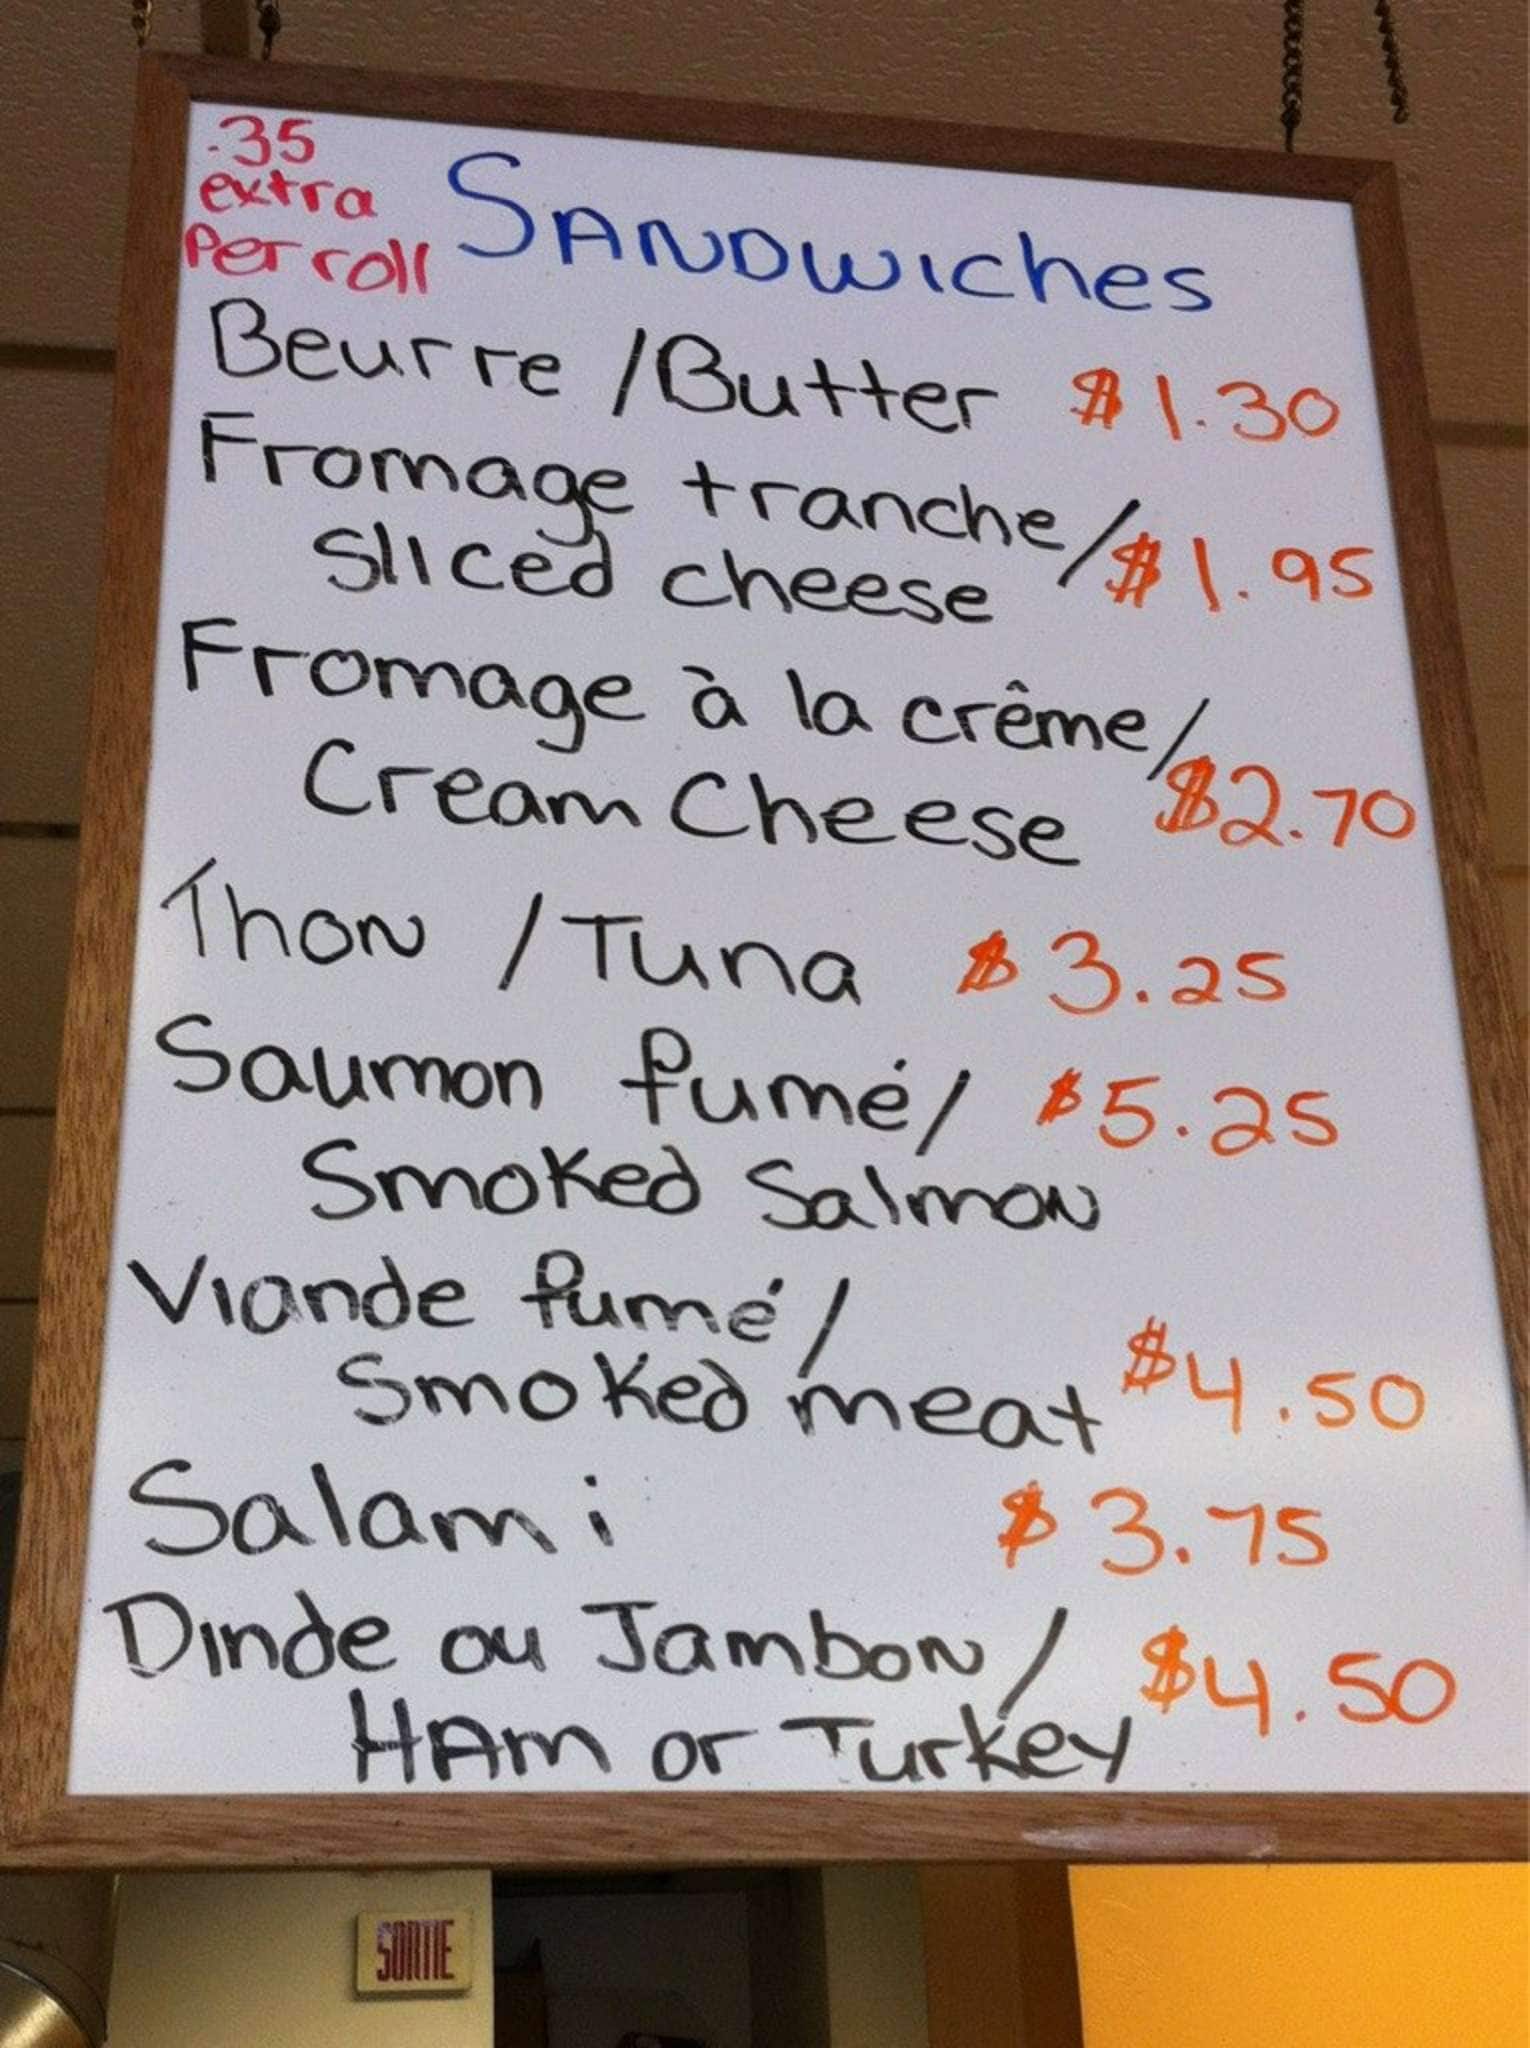 .35
extra
Per roll
SANDWiches
Beurre / Butter $1.30
Fromage tranche/ $1.95
Sliced cheese
Fromage à la crême/
Cream Cheese $2.70
Thon / Tuna $3.25
Saumon fumé/ $5.25
Smoked Salmon
Viande fumé/
Smoked meat $4.50
Salami $3.75
Dinde ou Jambon/ $4.50
HAm or Turkey
SORTIE